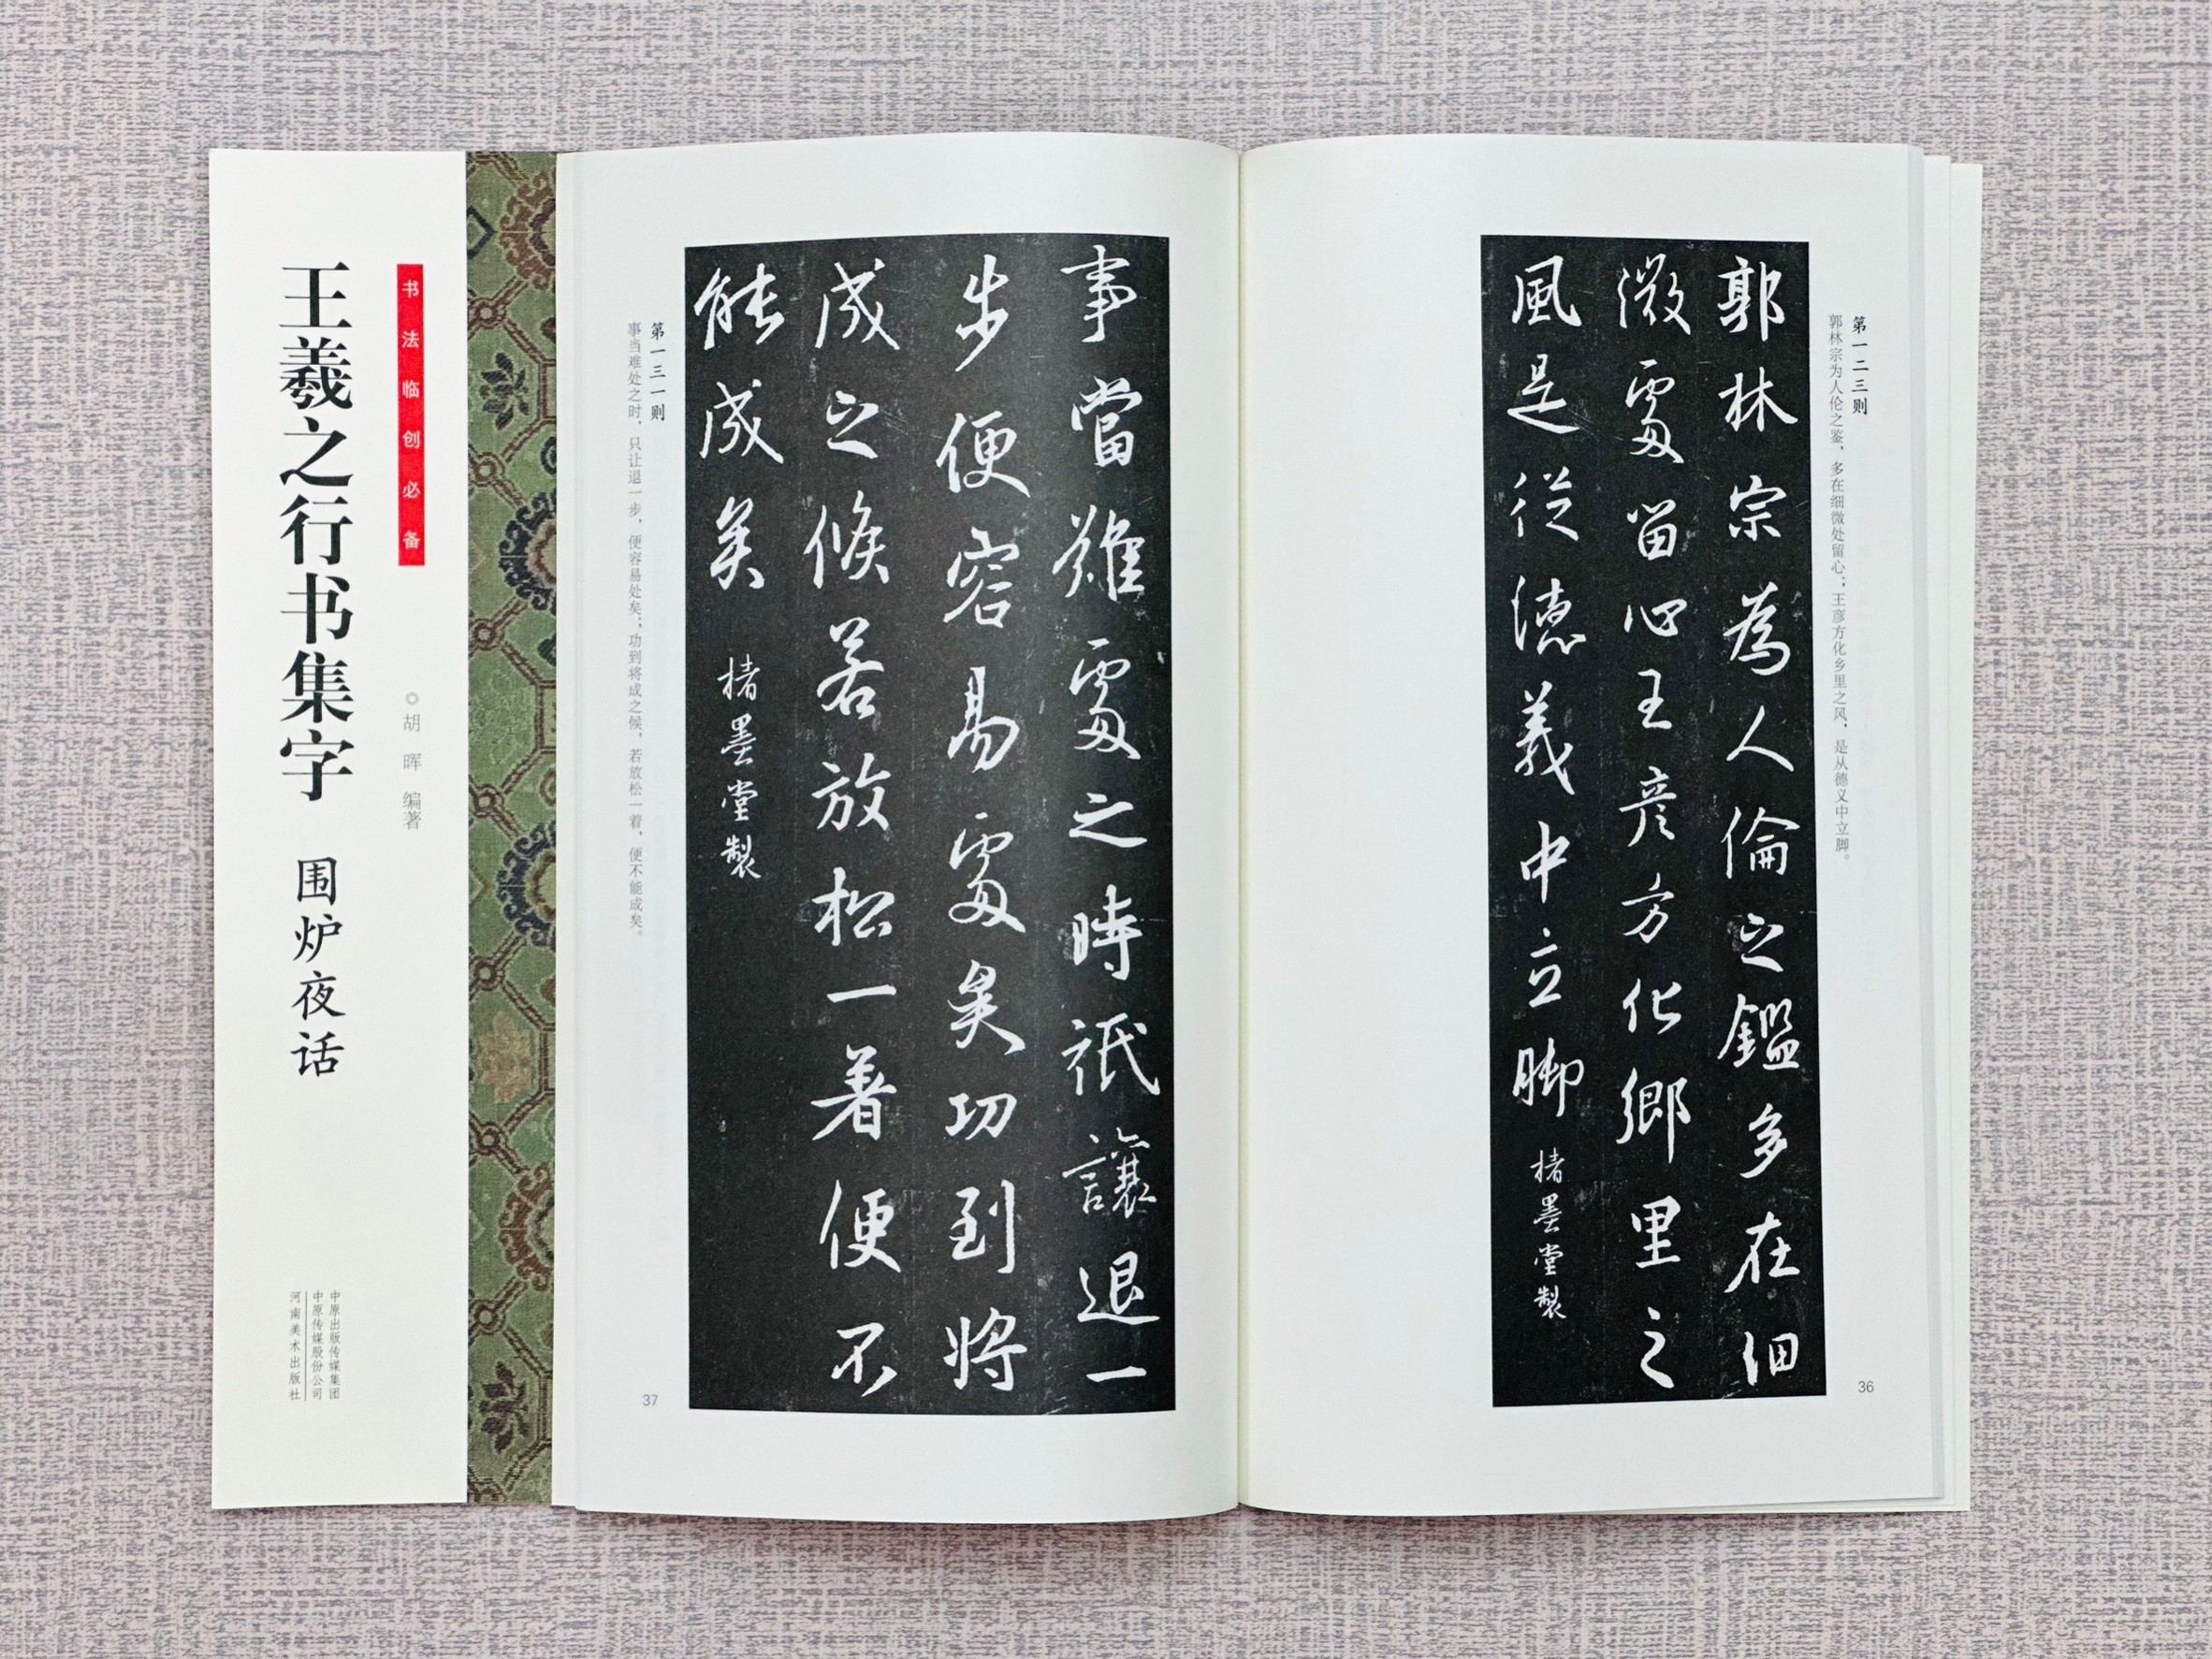 书法临创必备
王羲之行书集字 围炉夜话
胡晖 编著
中原出版传媒集团
中原传媒股份公司
河南美术出版社
第一二三则
郭林宗为人伦之鉴，多在细微处留心；王彦方化乡里之风，是从德义中立脚。
郭林宗為人倫之鑑多在細
微處留心王彦方化鄉里之
風是從德義中立脚 楮墨堂製
36
事當難處之時祇讓退一
步便容易處矣功到將
成之候若放松一著便不
能成矣 楮墨堂製
第一三一则
事当难处之时，只让退一步，便容易处矣；功到将成之候，若放松一着，便不能成矣。
37